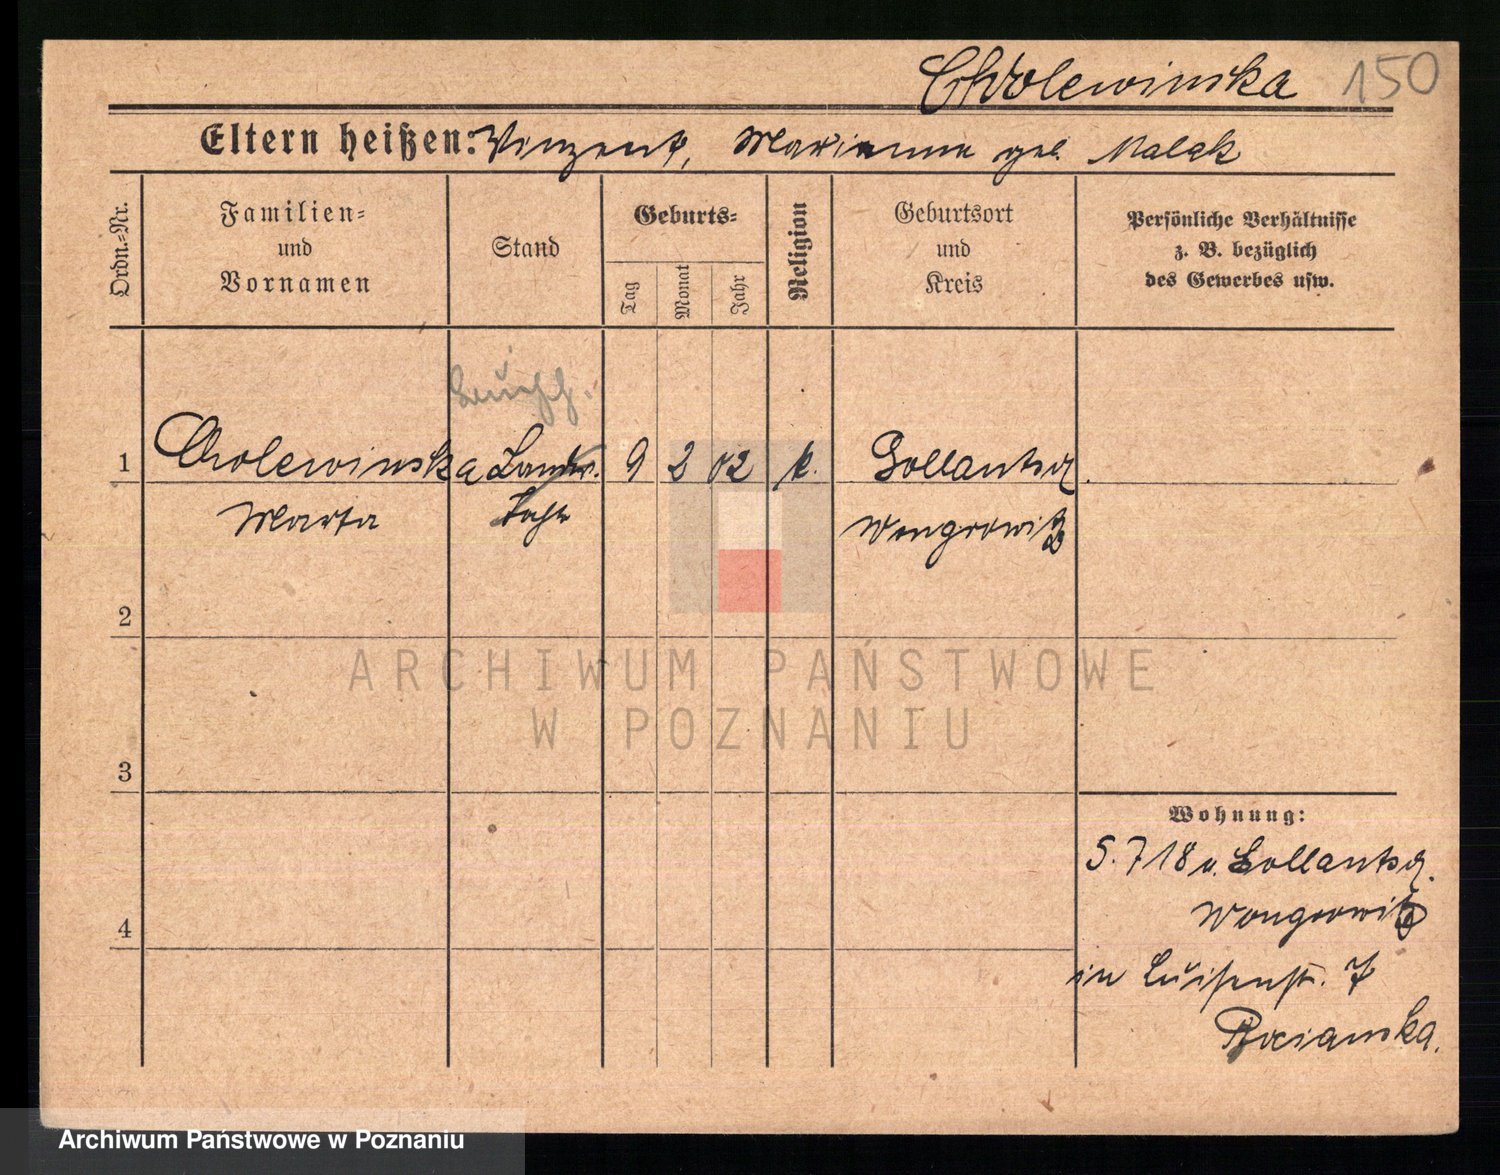 Cholewinska 150
Eltern heißen: Vinzent, Marianna geb. Malak
Ordn.=Nr.
Familien=
und
Vornamen
Stand
Geburts=
Tag
Monat
Jahr
Religion
Geburtsort
und
Kreis
Persönliche Verhältnisse
z. B. bezüglich
des Gewerbes usw.
1 Cholewinska 9 2 02 k. Gollantsch
Marta Wongrowitz
2
3
4
Wohnung:
5.7 18 v. Gollantsch.
Wongrowitz
in Luisenstr. 7
ARCHIWUM PAŃSTWOWE
W POZNANIU
Archiwum Państwowe w Poznaniu